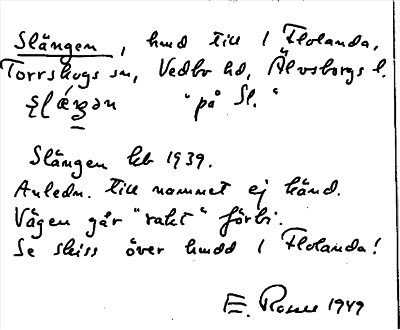 Slängen, hmd till 1 Flolanda,
Torrskogs sn, Vedbo hd, Älvsborgs l.
"på Sl."
Slängen beb 1939.
Anledn. till namnet ej känd.
Vägen går "rakt" förbi.
Se skiss över hmdd 1 Flolanda!
E. Rosell 1949